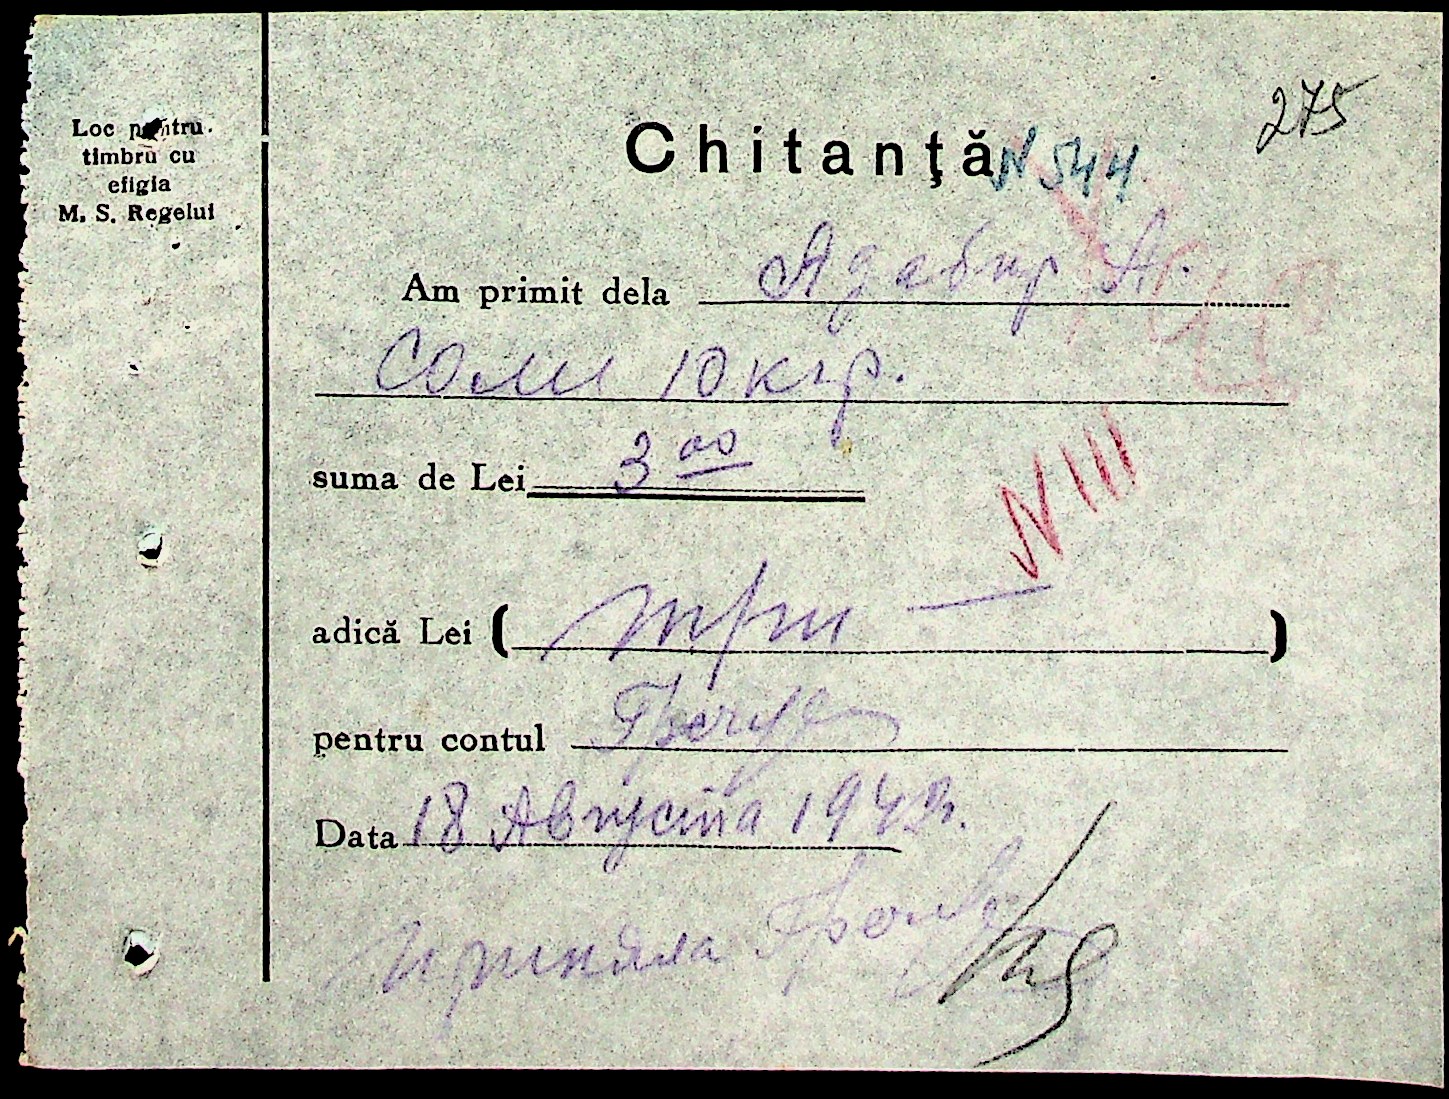 275
Loc pentru
timbru cu
efigia
M. S. Regelui
Chitanţă N 544
Am primit dela Адабир А.
соли 10 кгр.
suma de Lei 3 00
N III
adică Lei ( три — )
pentru contul
Data 18 Августа 1942г.
Приняла